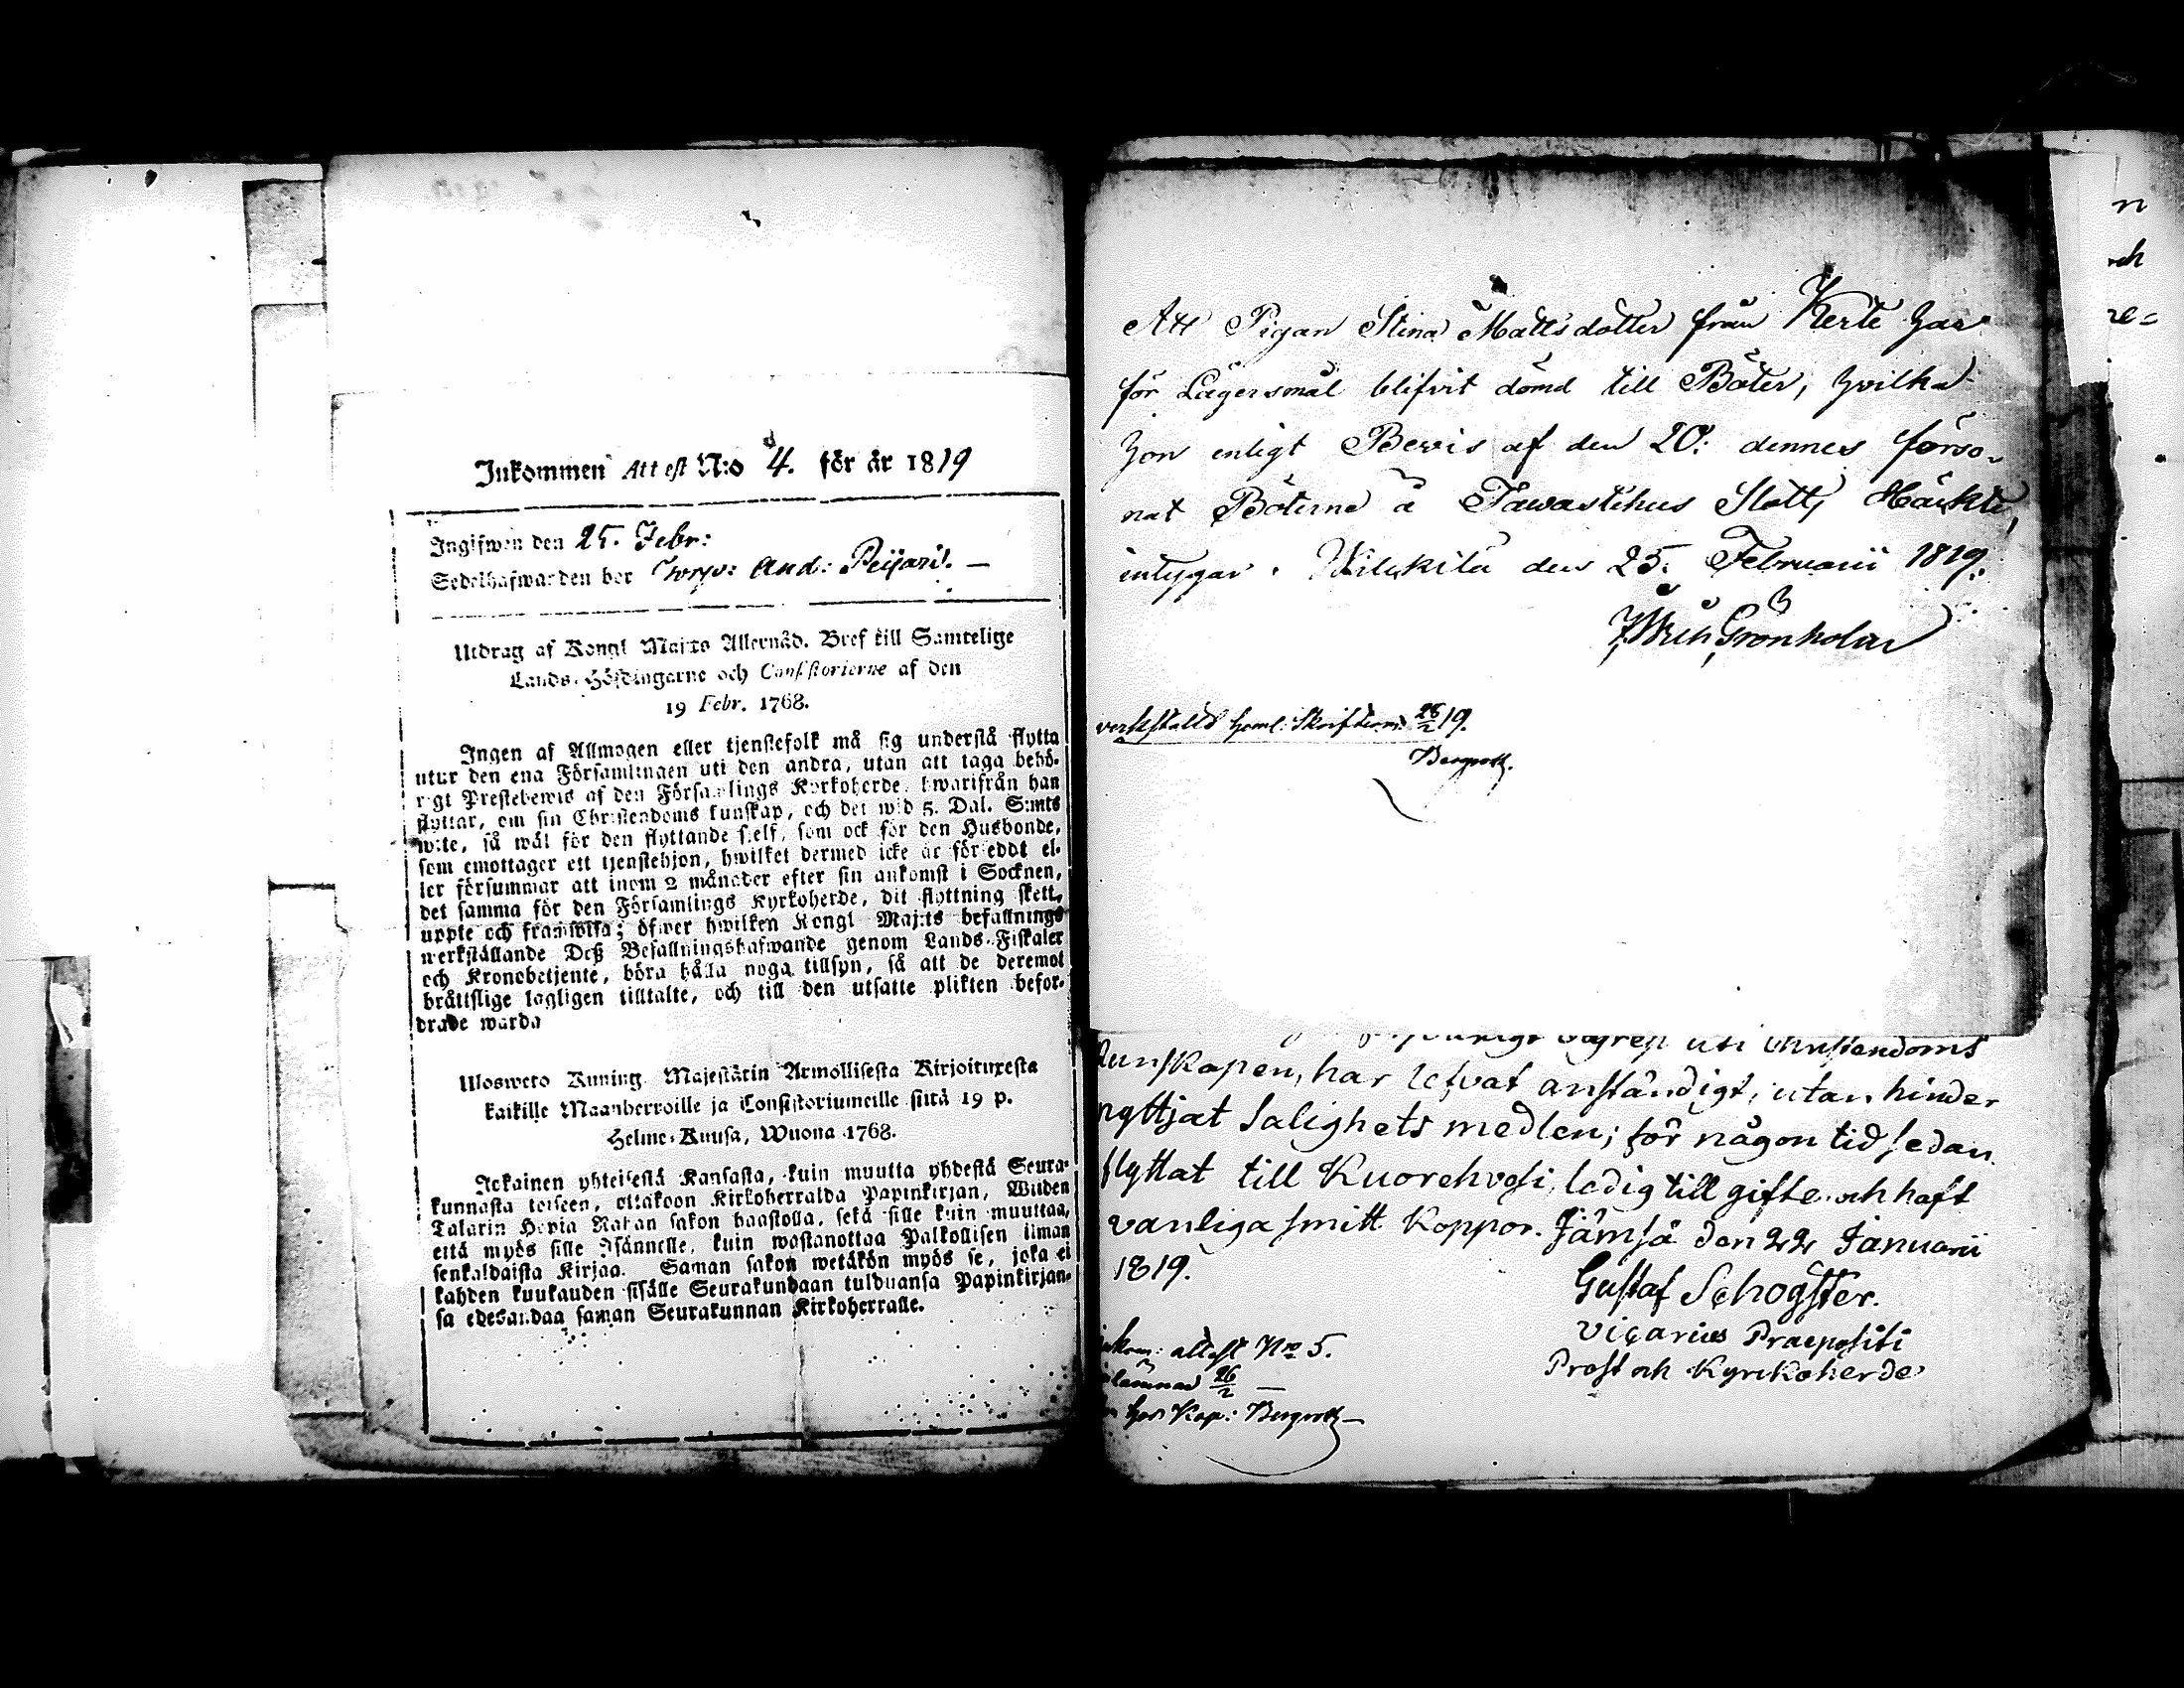 Inkommen Attest N:o 4. för år 1819
Ingifwen den 25. Febr:
Sedelhafwarden bor And: Peijari. —
Utdrag af Kongl Maj:ts Allernåd. Bref till Samtelige
Lands-Höfdingarne och Consistorierne af den
19 Febr. 1768.
Ingen af Allmogen eller tjenstefolk må sig understå flytta
utur den ena Församlingen uti den andra, utan att taga behö-
rigt Prestebewis af den Församlings Kyrkoherde, hwarifrån han
flyttar, om sin Christendoms kunskap, och det wid 5. Dal. S:mts
wite, så wäl för den flyttande sielf, som ock för den Husbonde,
som emottager ett tjenstehjon, hwilket dermed icke är förseddt el-
ler försummar att inom 2 månader efter sin ankomst i Socknen,
det samma för den Församlings Kyrkoherde, dit flyttning skett,
uppte och framwisa; öfwer hwilken Kongl Maj:ts befallnings
werkställande Deß Befallningshafwande genom Lands-Fiskaler
och Kronobetjente, böra hålla noga tillsyn, så att de deremot
bråttslige lagligen tilltalte, och till den utsatte plikten befor-
drade warda
Ulosweto Kuning. Majestätin Armollisesta Kirjoituxesta
kaikille Maanherroille ja Consistoriumeille siitä 19 p.
Helme-Kuusa, Wuona 1768.
Jokainen yhteisestä Kansasta, kuin muutta yhdestä Seura-
kunnasta toiseen, ottakoon Kirkoherralda Papinkirjan, Wiiden
Talarin Hopia Rahan sakon haastolla, sekä sille kuin muuttaa,
että myös sille Isännelle, kuin wastanottaa Palkollisen ilman
senkaldaista Kirjaa. Saman sakon wetäkön myös se, joka ei
kahden kuukauden sisälle Seurakundaan tulduansa Papinkirjan-
sa edesandaa saman Seurakunnan Kirkoherralle.
Att Pigan Stina Mattsdotter från Kerte har
för Lägersmål blifvit dömd till Böter, hvilka
hon enligt Bevis af den 20: dennes förso-
nat Böterne å Tawastehus Slotts Häckte,
intygar. den 25. Februarii 1819.
Grönholm
verkställd heml: Skriftermål 28/2 19.
Bergroth.
uti Christendoms
Kunskapen, har lefvat anständigt, utan hinder
nyttjat Salighets medlen; för någon tid sedan
flyttat till Kuorehvesi, ledig till gifte och haft
vanliga smitt Koppor. Jämsä den 22 Januarii
1819.
Gustaf Schogster.
Vicarius Praepositi
Prost och Kyrkoherde
attest No 5.
26/2 —
hos Kap: Bergroth —
n
ch
re=